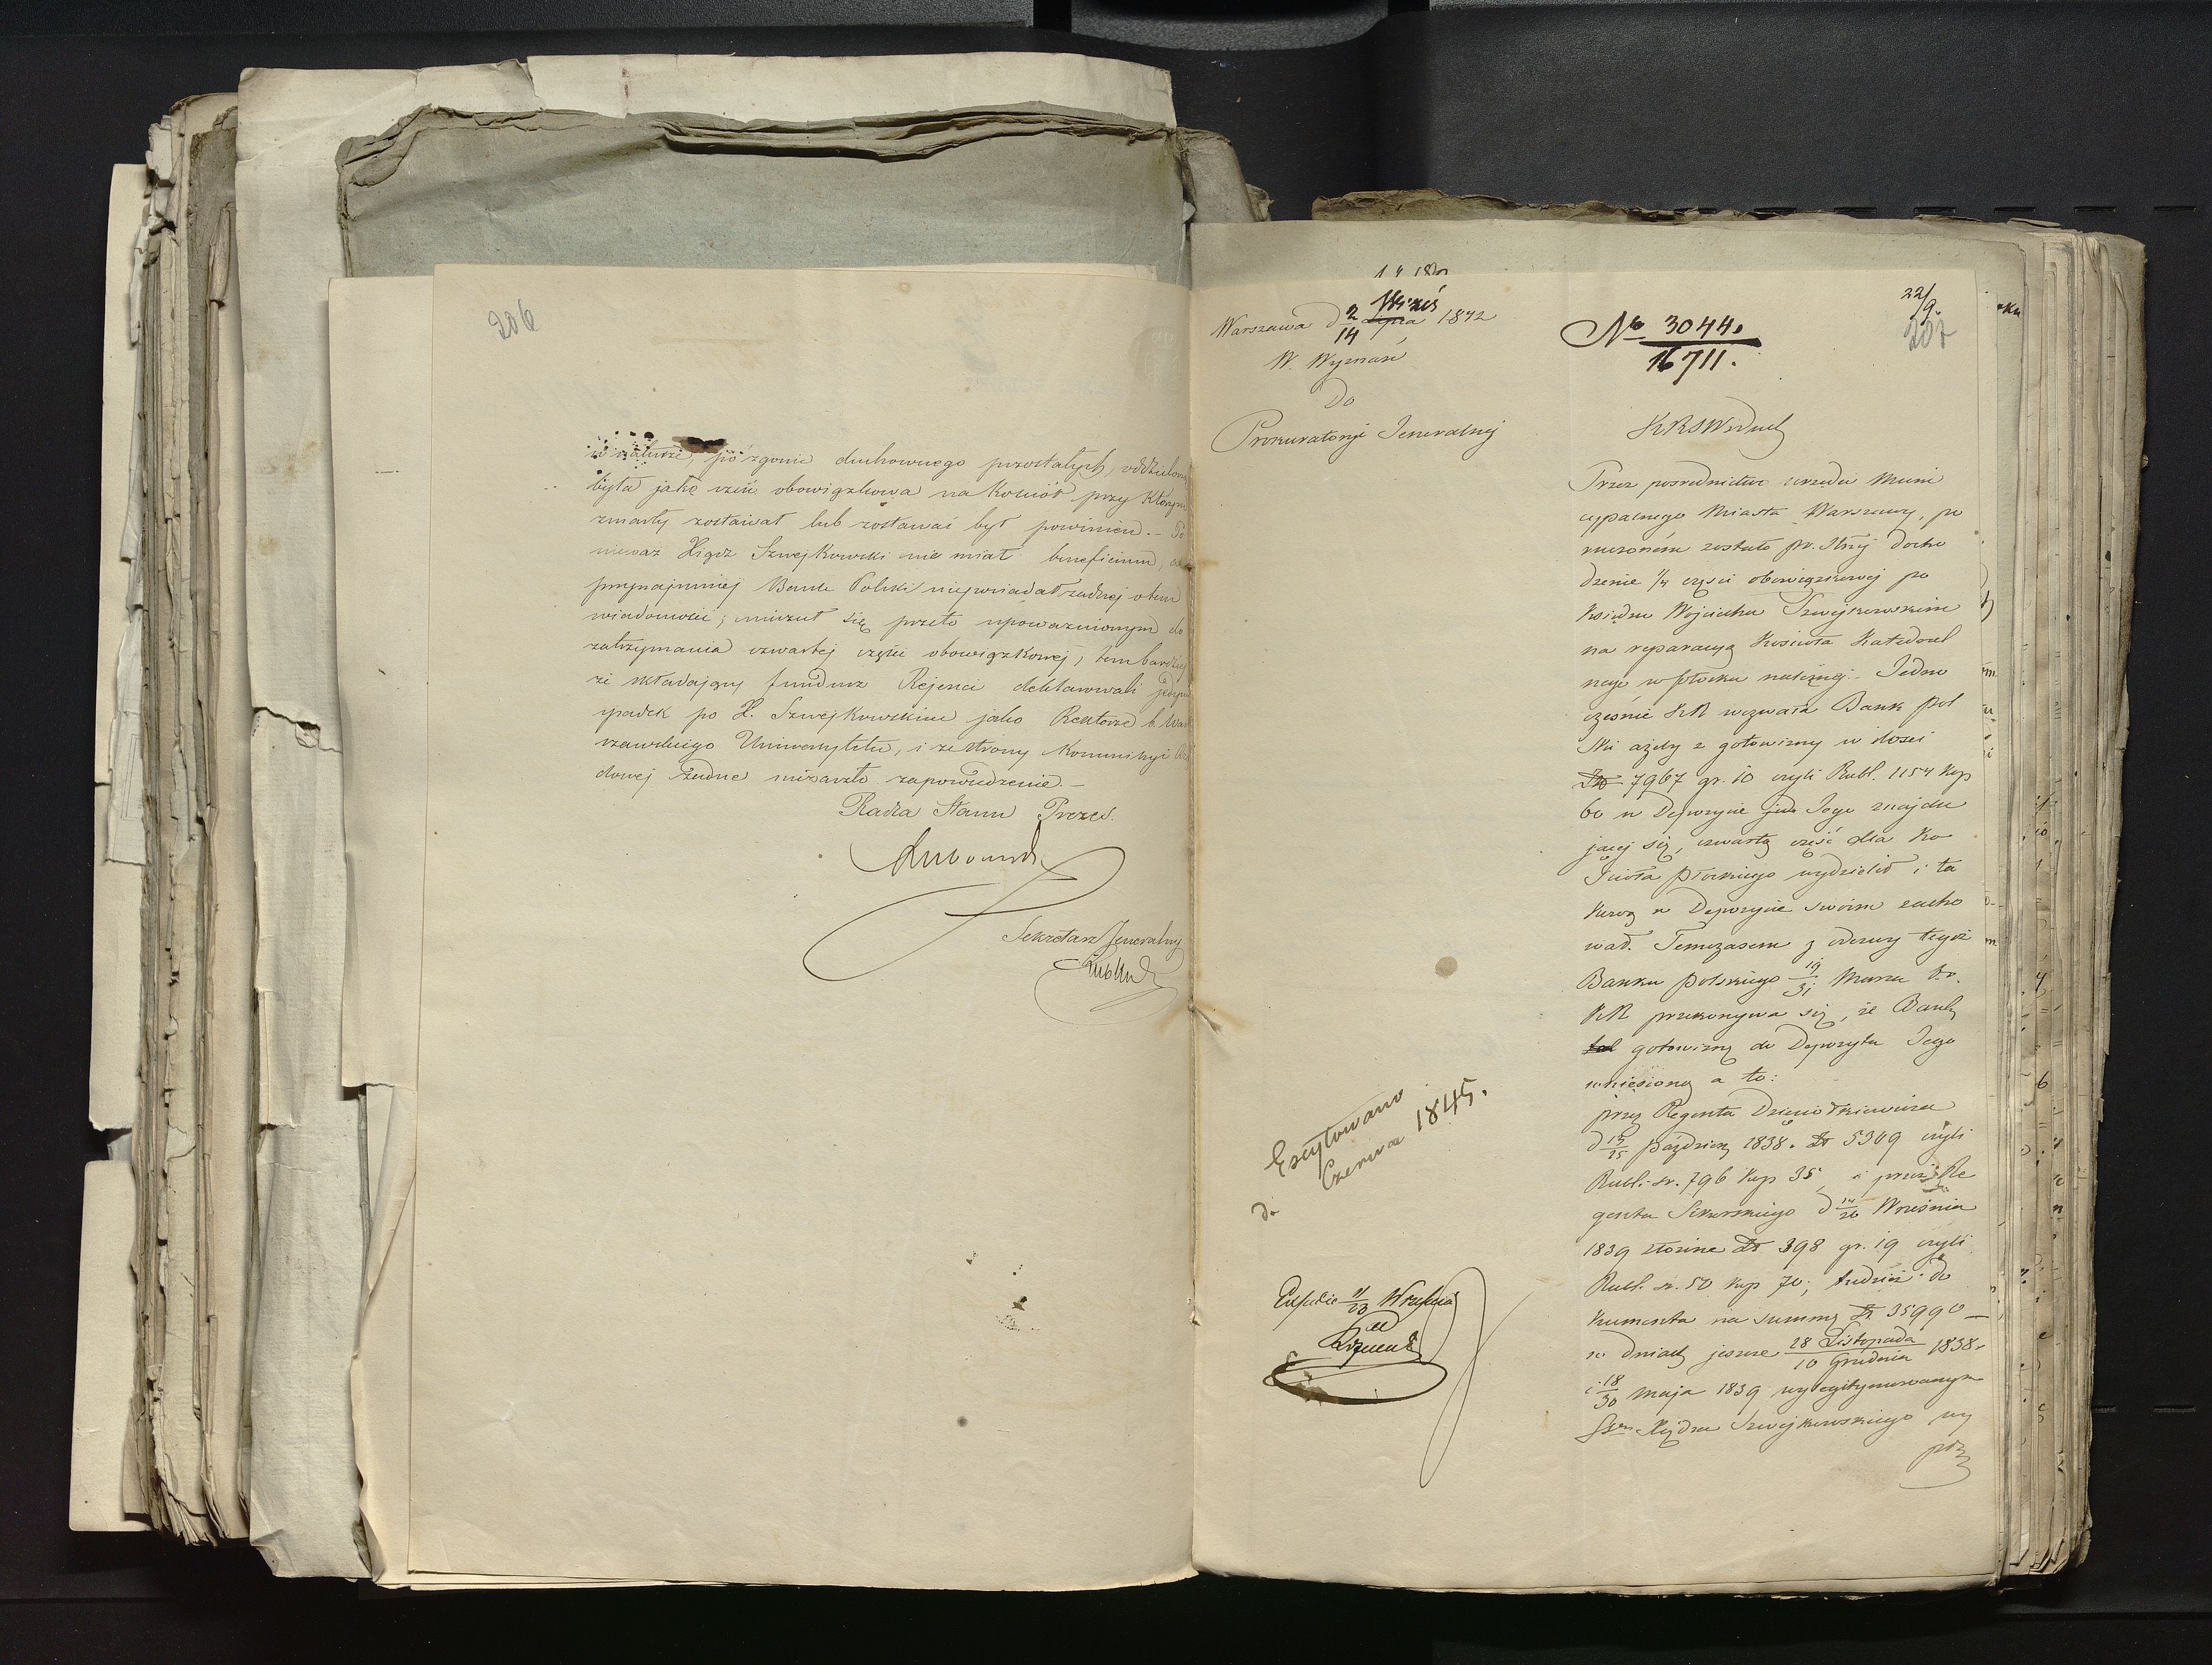 206
w naturze, po zgonie duchownego pozostałych, oddzieloną
była jako część obowiązkowa na Kościół przy którym
zmarły zostawał lub zostawać był powinien. – Po
nieważ Xiądz Szwejkowski nie miał beneficium,
przynajmniej Bank Polski nieposiadał żadnej o tem
wiadomości; nieczuł się przeto upoważnionym do
zatrzymania czwartej części obowiązkowej, tembardziej
że składający fundusz Rejenci deklarowali jedynie
spadek po X. Szwejkowskim jako Rektorze b. War
szawskiego Uniwersytetu, i ze strony Kommissyi Rzą
dowej żadne niezaszło zapowiedzenie. –
Radca Stanu Prezes.
Sekretarz Jeneralny
22/9.
207
Warszawa d 2/14 1842
W. Wyznań
Do
Prokuratoryi Jeneralnej
No 3044.
16711.
Przez pośrednictwo urzędu Muni
cypalnego Miasta Warszawy, po
ruczonem zostało pr. Itrji docho
dzenie 1/4 części obowiązkowej po
Księdzu Wojciechu Szwejkowskim
na reparacyą Kościoła Katedral
nego w Płocku należnej. Jedno
cześnie KR wezwała Bank Pol
ski ażeby z gotowizny w ilości
Zło 7967 gr. 10 czyli Rubl. 1154 Kop
60 w Depozycie Jego znajdu
jącej się, czwartą część dla Ko
ścioła Płockiego wydzielił i ta
kową w Depozycie swoim zacho
wał. Temczasem z odezwy tegoż
Banku Polskiego 19/31 Marca
KR przekonywa się, że Bank
gotowiznę do Depozytu Jego
wniesioną a to:
przez Regenta
d 13/25 Paździer. 1838. Zł 5309 czyli
Rubl. sr. 796 Kop 35, i przez Re
genta Sikorskiego d 14/26 Września
1839 złożone Zł 398 gr. 19 czyli
Rubl. sr. 59 Kop 70; tudzież do
kumenta na summę Zł 35990 –
w dniach jeszcze 28 Listopada/10 Grudnia 1838.
i 18/30 Maja 1839 wylegitymowanym
Ssom Księdza Szwejkowskiego wy
Excytowano
do Czerwca 1845.
11/23 Września